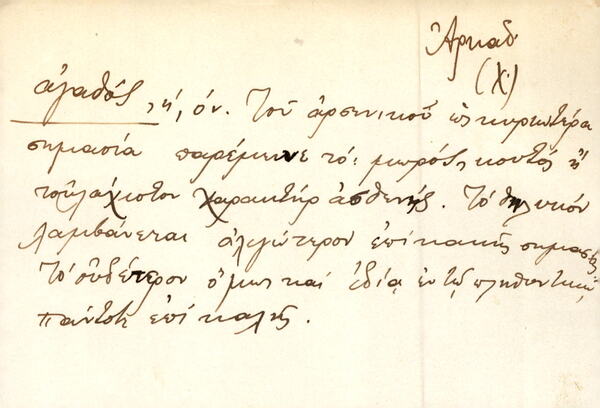 Ἀρκαδ.
(Χ.)
ἀγαθός, ή, όν. Τοῦ ἀρσενικοῦ ὡς κυριωτέρα
σημασία παρέμεινε τό: μωρός, κουτός ἢ
τοὐλάχιστον χαρακτὴρ ἀσθενής. Τὸ θηλυκόν
λαμβάνεται ὀλιγώτερον ἐπὶ κακῆς σημασίας
Τὸ οὐδέτερον ὅμως καὶ ἰδίᾳ ἐν τῷ πληθυντικῷ
πάντοτε ἐπὶ καλῆς.